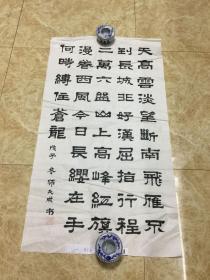 天高雲淡望斷南飛雁不
到長城非好漢屈指行程
二萬六盤山上高峰紅旗
漫卷西風今日長纓在手
何時縛住蒼龍 戊子冬 書